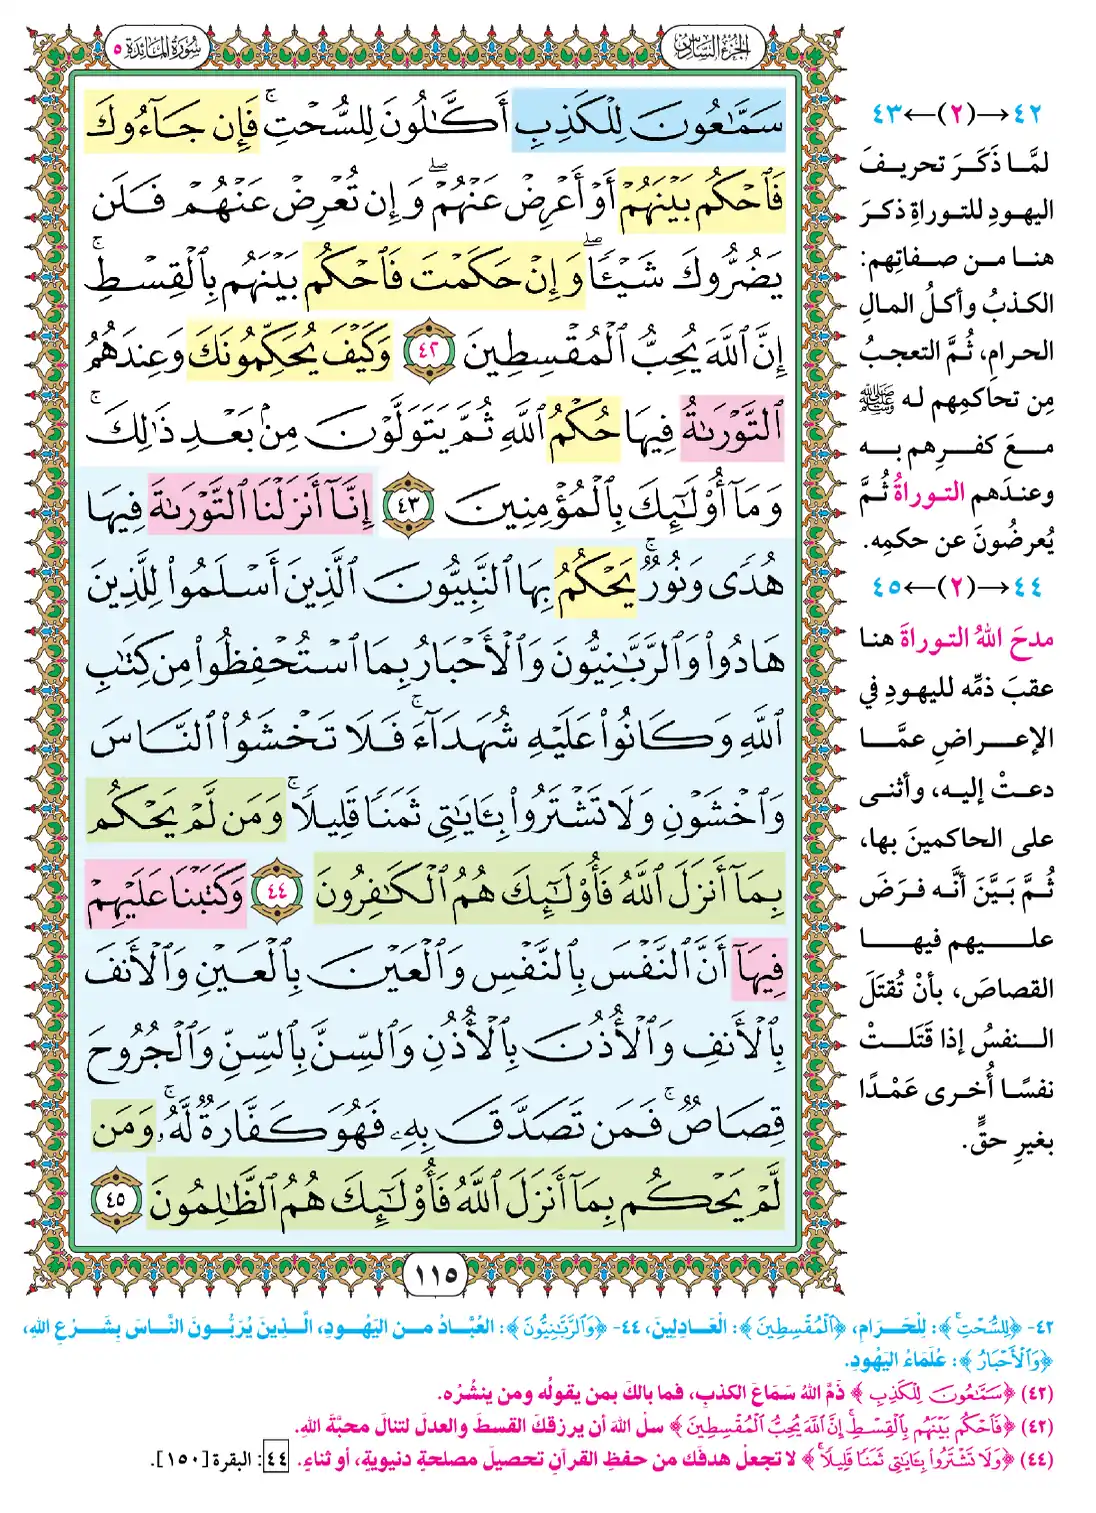 الجزء السادس
سورة المائدة ٥
سَمَّٰعُونَ لِلْكَذِبِ أَكَّٰلُونَ لِلسُّحْتِ ۚ فَإِن جَآءُوكَ
فَٱحْكُم بَيْنَهُمْ أَوْ أَعْرِضْ عَنْهُمْ ۖ وَإِن تُعْرِضْ عَنْهُمْ فَلَن
يَضُرُّوكَ شَيْـًٔا ۖ وَإِنْ حَكَمْتَ فَٱحْكُم بَيْنَهُم بِٱلْقِسْطِ ۚ
إِنَّ ٱللَّهَ يُحِبُّ ٱلْمُقْسِطِينَ ٤٢ وَكَيْفَ يُحَكِّمُونَكَ وَعِندَهُمُ
ٱلتَّوْرَىٰةُ فِيهَا حُكْمُ ٱللَّهِ ثُمَّ يَتَوَلَّوْنَ مِنۢ بَعْدِ ذَٰلِكَ ۚ
وَمَآ أُو۟لَٰٓئِكَ بِٱلْمُؤْمِنِينَ ٤٣ إِنَّآ أَنزَلْنَا ٱلتَّوْرَىٰةَ فِيهَا
هُدًى وَنُورٌ ۚ يَحْكُمُ بِهَا ٱلنَّبِيُّونَ ٱلَّذِينَ أَسْلَمُوا۟ لِلَّذِينَ
هَادُوا۟ وَٱلرَّبَّٰنِيُّونَ وَٱلْأَحْبَارُ بِمَا ٱسْتُحْفِظُوا۟ مِن كِتَٰبِ
ٱللَّهِ وَكَانُوا۟ عَلَيْهِ شُهَدَآءَ ۚ فَلَا تَخْشَوُا۟ ٱلنَّاسَ
وَٱخْشَوْنِ وَلَا تَشْتَرُوا۟ بِـَٔايَٰتِى ثَمَنًا قَلِيلًا ۚ وَمَن لَّمْ يَحْكُم
بِمَآ أَنزَلَ ٱللَّهُ فَأُو۟لَٰٓئِكَ هُمُ ٱلْكَٰفِرُونَ ٤٤ وَكَتَبْنَا عَلَيْهِمْ
فِيهَآ أَنَّ ٱلنَّفْسَ بِٱلنَّفْسِ وَٱلْعَيْنَ بِٱلْعَيْنِ وَٱلْأَنفَ
بِٱلْأَنفِ وَٱلْأُذُنَ بِٱلْأُذُنِ وَٱلسِّنَّ بِٱلسِّنِّ وَٱلْجُرُوحَ
قِصَاصٌ ۚ فَمَن تَصَدَّقَ بِهِۦ فَهُوَ كَفَّارَةٌ لَّهُۥ ۚ وَمَن
لَّمْ يَحْكُم بِمَآ أَنزَلَ ٱللَّهُ فَأُو۟لَٰٓئِكَ هُمُ ٱلظَّٰلِمُونَ ٤٥
١١٥
٤٢→(٢)←٤٣
لمَّا ذَكَرَ تحريفَ
اليهودِ للتوراةِ ذكرَ
هنا من صفاتِهم:
الكذبُ وأكلُ المالِ
الحرامِ، ثُمَّ التعجبُ
مِن تحاكمِهم له ﷺ
معَ كفرِهم به
وعندَهم التوراةُ ثُمَّ
يُعرضُونَ عن حكمِه.
٤٤→(٢)←٤٥
مدحَ اللهُ التوراةَ هنا
عقبَ ذمِّه لليهودِ في
الإعراضِ عمَّا
دعتْ إليه، وأثنى
على الحاكمينَ بها،
ثُمَّ بَيَّنَ أنَّه فرَضَ
عليهم فيها
القصاصَ، بأنْ تُقتَلَ
النفسُ إذا قَتَلتْ
نفسًا أُخرى عَمْدًا
بغيرِ حقٍّ.
٤٢- ﴿لِلسُّحْتِ ۚ﴾: لِلْحَرَامِ، ﴿ٱلْمُقْسِطِينَ﴾: الْعَادِلِينَ، ٤٤- ﴿وَٱلرَّبَّٰنِيُّونَ﴾: العُبَّادُ من اليَهُودِ، الَّذِينَ يُرَبُّونَ النَّاسَ بِشَرْعِ اللهِ،
﴿وَٱلْأَحْبَارُ﴾: عُلَمَاءُ اليَهُودِ.
(٤٢) ﴿سَمَّٰعُونَ لِلْكَذِبِ﴾ ذَمَّ اللهُ سَمَاعَ الكذبِ، فما بالكَ بمن يقولُه ومن ينشُرُه.
(٤٢) ﴿فَٱحْكُم بَيْنَهُم بِٱلْقِسْطِ ۚ إِنَّ ٱللَّهَ يُحِبُّ ٱلْمُقْسِطِينَ﴾ سل اللهَ أن يرزقكَ القسطَ والعدلَ لتنالَ محبَّةَ اللهِ.
(٤٤) ﴿وَلَا تَشْتَرُوا۟ بِـَٔايَٰتِى ثَمَنًا قَلِيلًا ۚ﴾ لا تجعلْ هدفَك من حفظِ القرآنِ تحصيلَ مصلحةٍ دنيويةٍ، أو ثناءٍ. ٤٤: البقرة [١٥٠].